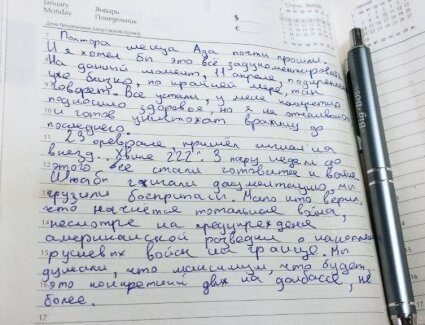 January Январь
Monday Понедельник
$
€
7 Полтора месяца Ада почти прошли.
И я хотел бы это всё задокументировать.
На данный момент, 11 апреля, подкрепление
уже близко, по крайней мере, так
говорят. Все устали, у меня конкретно
подкосило здоровье, но я не отчаиваюсь
и готов уничтожать вражину до
последнего.
11 23 февраля, пришёл сигнал на
выезд. "222". З пару недель до
этого все стали готовится к войне
Штабы гасили документацию, мы
грузили боеприпасы. Мало кто верил,
что начнется тотальная война,
несмотря на предупреждения
американской розведки о накоплении
русневых войск на границе. Мы
15 думали, что максимум, что будет,
16 это конкретный движ на донбассе, не
более.
17